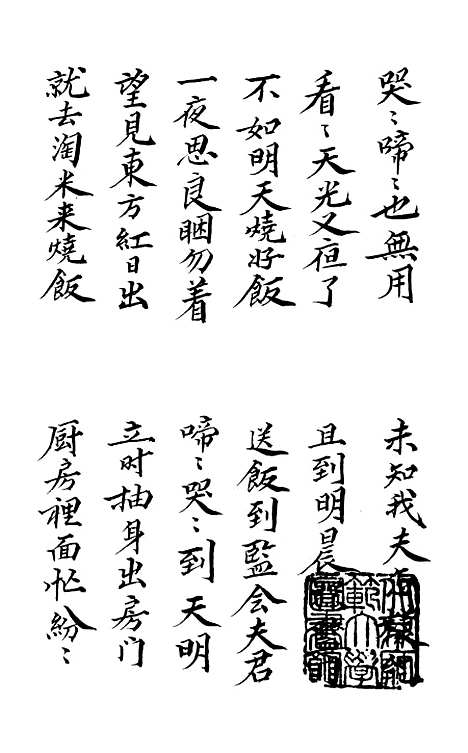 哭〻啼〻也無用
未知我夫
看〻天光又亱了
且到明晨
不如明天燒好飯
送飯到監会夫君
一夜思良睏勿着
啼〻哭〻到天明
望見東方紅日出
立时抽身出房门
就去淘米来燒飯
厨房裡面忙紛〻
範大學
圖書館